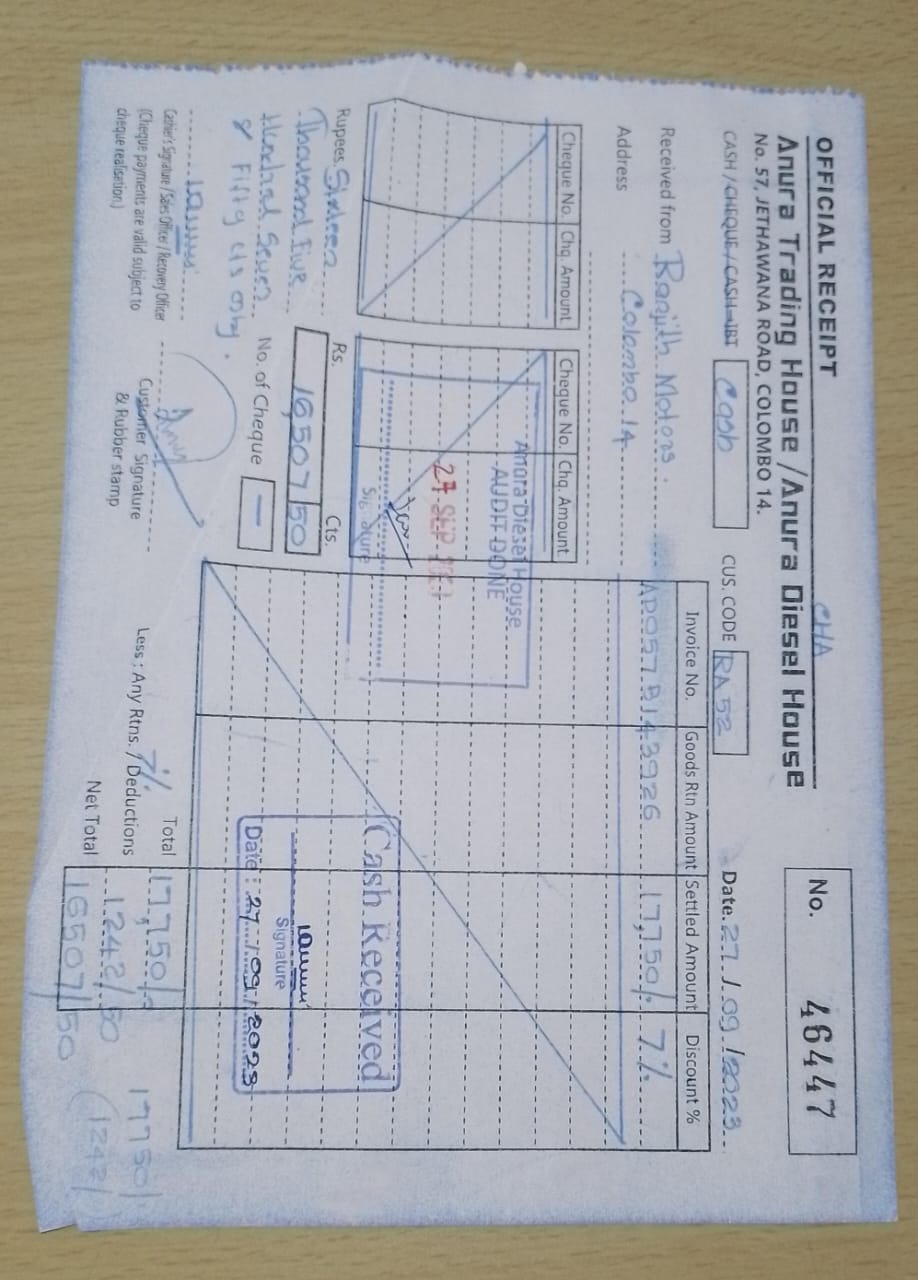 CHA
OFFICIAL RECEIPT
Anura Trading House /Anura Diesel House
No. 57, JETHAWANA ROAD, COLOMBO 14.
No. 46447
CASH / CHEQUE / CASH-IBT Cash CUS. CODE RA 52 Date. 27 / 09 / 2023
Received from Ranjith Motors.
Address Colombo. 14
Cheque No. Chq. Amount Cheque No. Chq. Amount
Invoice No. Goods Rtn Amount Settled Amount Discount %
AD057B143926 17,750/. 7%
Anura Diesel House
AUDIT DONE
27 SEP
Signature
Cash Received
Signature
Date : 27 / 09 / 2023
Rupees Sixteen
Thousand Five
Hundred Seven
& Fifty cts only.
Rs. Cts.
16,507 50
No. of Cheque —
Total 17,750/.
7%
Less : Any Rtns. / Deductions 1242/50
Net Total 16507/50
17750/
(1242/
Cashier's Signature / Sales Officer / Recovery Officer
(Cheque payments are valid subject to
cheque realisation.)
Customer Signature
& Rubber stamp